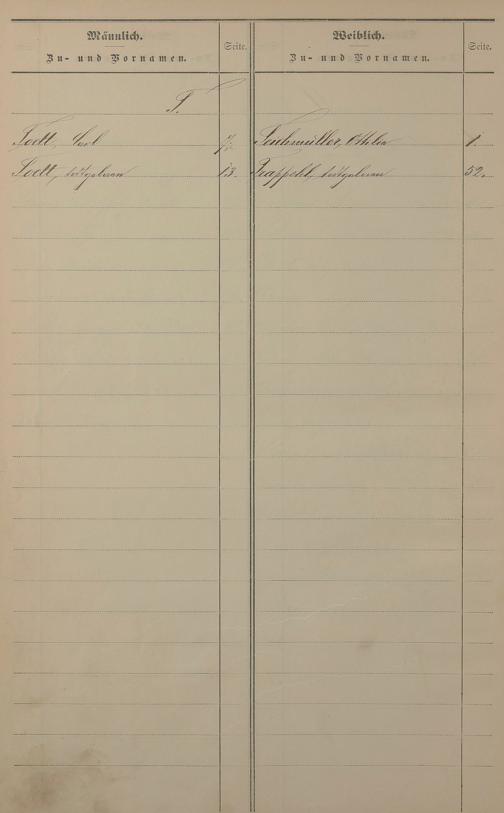 Männlich.
Zu- und Vornamen.
Seite.
Weiblich.
Zu- und Vornamen.
Seite.
T.
Todt, Carl
7.
Todt, todtgeboren
13.
Teichmüller, Ottilie
1.
Trappehl, todtgeboren
52.